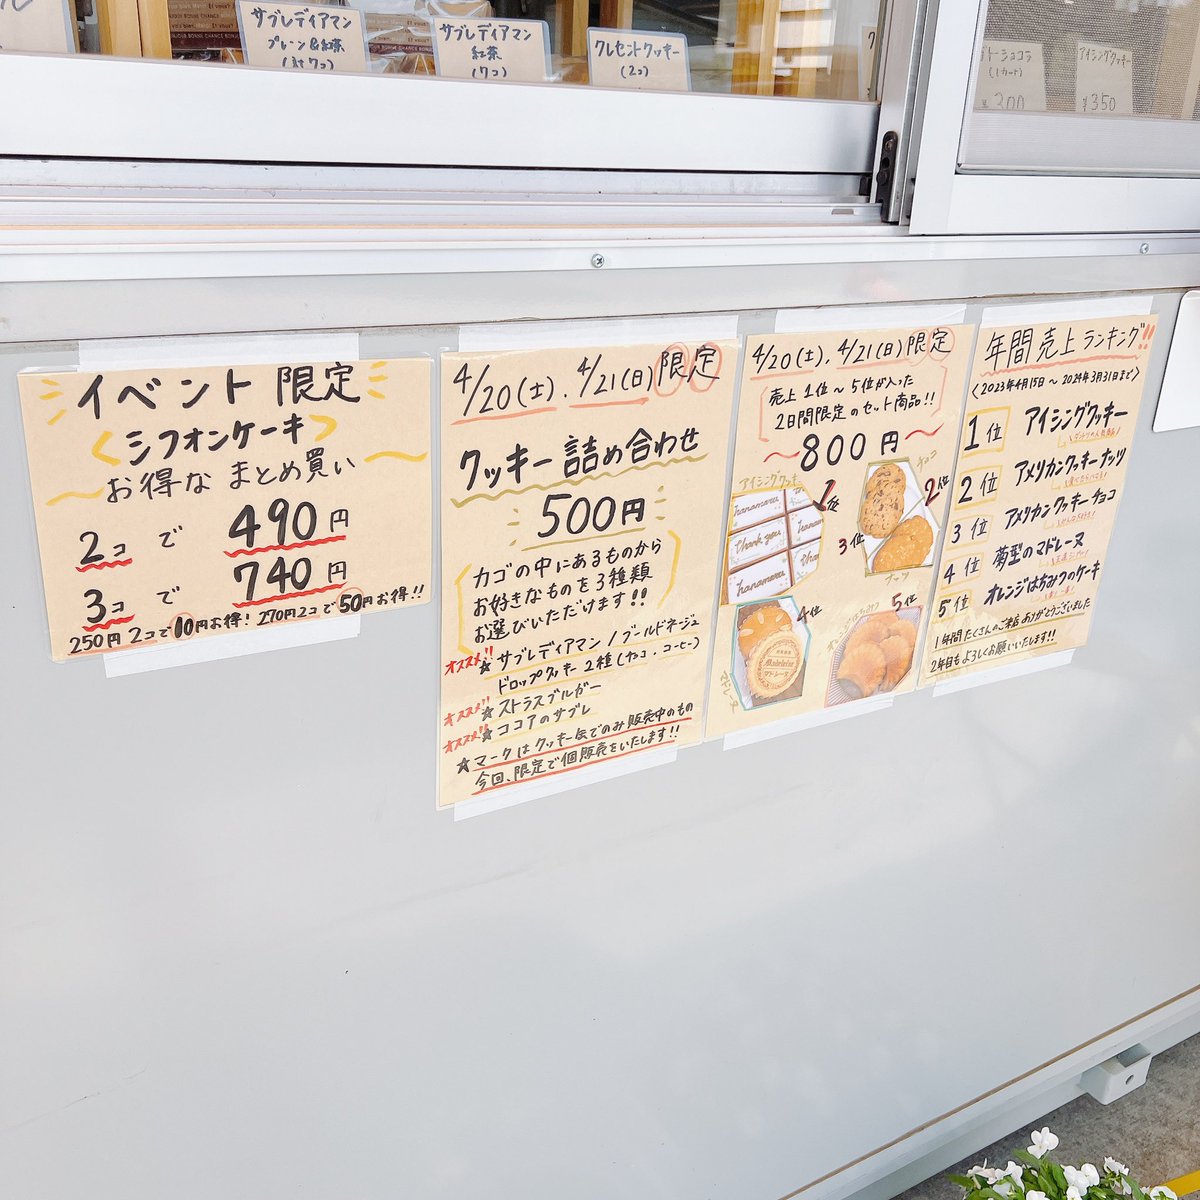 サブレディアマン
プレーン&紅茶
(計7コ)
サブレディアマン
紅茶
(7コ)
クレセントクッキー
(2コ)
トショコラ
(1カット)
¥200
アイシングクッキー
¥350
イベント 限定
シフォンケーキ
お得な まとめ買い
2コ で 490円
3コ で 740円
250円2コで10円お得! 270円2コで50円お得!!
4/20(土).4/21(日)限定
クッキー詰め合わせ
500円
カゴの中にあるものから
お好きなものを3種類
お選びいただけます!!
オススメ!! ☆ サブレディアマン/ブールドネージュ
ドロップクッキー2種(チョコ・コーヒー)
オススメ!! ☆ ストラスブルガー
オススメ!! ☆ ココアのサブレ
☆マークはクッキー缶でのみ販売中のもの
今回、限定で個販売をいたします!!
4/20(土).4/21(日)限定
売上1位〜5位が入った
2日間限定のセット商品!!
〜800円〜
アイシングクッキー
1位
チョコ
2位
3位
ナッツ
hanamoru
thank you
hanamoru
4位
Madeleine
マドレーヌ
マドレーヌ
5位
年間売上ランキング!!
〈2023年4月15日〜2024年3月31日まで〉
1位 アイシングクッキー
2位 アメリカンクッキーナッツ
3位 アメリカンクッキーチョコ
4位 菊型のマドレーヌ
5位 オレンジはちみつのケーキ
1年間たくさんのご来店ありがとうございました
2年目もよろしくお願いいたします!!